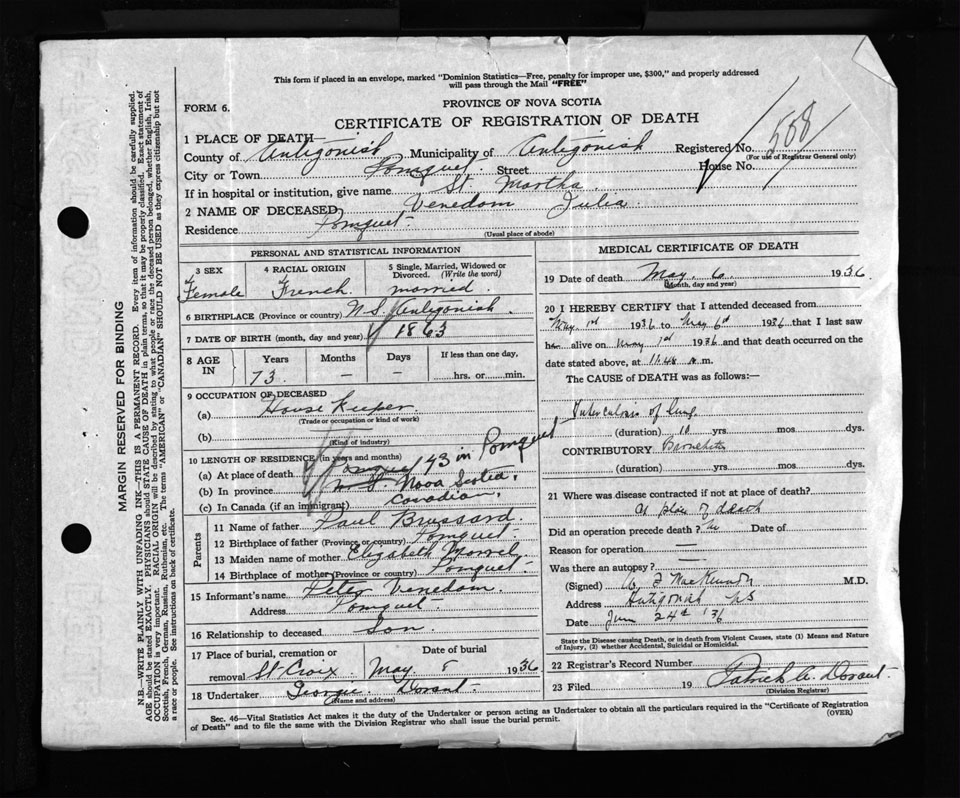 This form if placed in an envelope, marked "Dominion Statistics—Free, penalty for improper use, $300," and properly addressed
will pass through the Mail "FREE"
FORM 6.
PROVINCE OF NOVA SCOTIA
CERTIFICATE OF REGISTRATION OF DEATH
508
1 PLACE OF DEATH—
County of Antigonish Municipality of Antigonish Registered No.
(For use of Registrar General only)
City or Town Pomquet Street House No.
If in hospital or institution, give name St. Martha
2 NAME OF DECEASED Venedam Julia
Residence Pomquet
(Usual place of abode)
PERSONAL AND STATISTICAL INFORMATION
3 SEX 4 RACIAL ORIGIN 5 Single, Married, Widowed or Divorced. (Write the word)
Female French married
6 BIRTHPLACE (Province or country) N.S. Antigonish
7 DATE OF BIRTH (month, day and year) 1863
8 AGE IN Years Months Days If less than one day,
73 — — hrs. or min.
9 OCCUPATION OF DECEASED
(a) House Keeper
(Trade or occupation or kind of work)
(b)
(Kind of industry)
10 LENGTH OF RESIDENCE (in years and months)
(a) At place of death Pomquet 43 in Pomquet
(b) In province Nova Scotia
(c) In Canada (if an immigrant) Canadian
Parents
11 Name of father Paul Brussard
12 Birthplace of father (Province or country) Pomquet
13 Maiden name of mother Elizabeth
14 Birthplace of mother (Province or country) Pomquet
15 Informant's name Peter Venedam
Address Pomquet
16 Relationship to deceased Son
17 Place of burial, cremation or removal Date of burial
St Croix May 8 1936
18 Undertaker George Dorant
(Name and address)
MEDICAL CERTIFICATE OF DEATH
19 Date of death May 6 1936
(Month, day and year)
20 I HEREBY CERTIFY that I attended deceased from
May 1st 1936 to May 6th 1936 that I last saw
h alive on May 1st 1936 and that death occurred on the
date stated above, at 11.40 m.
The CAUSE OF DEATH was as follows:—
Tuberculosis of lung
(duration) 10 yrs. mos. dys.
CONTRIBUTORY Bronchitis
(duration) yrs. mos. dys.
21 Where was disease contracted if not at place of death?
At place of death
Did an operation precede death? No Date of
Reason for operation —
Was there an autopsy?
(Signed) M.D.
Address Antigonish NS
Date June 24th '36
State the Disease causing Death, or in death from Violent Causes, state (1) Means and Nature
of Injury, (2) whether Accidental, Suicidal or Homicidal.
22 Registrar's Record Number
23 Filed 19 Patrick A. Dorant
(Division Registrar)
Sec. 46—Vital Statistics Act makes it the duty of the Undertaker or person acting as Undertaker to obtain all the particulars required in the "Certificate of Registration
of Death" and to file the same with the Division Registrar who shall issue the burial permit. (OVER)
MARGIN RESERVED FOR BINDING
N.B.—WRITE PLAINLY WITH UNFADING INK—THIS IS A PERMANENT RECORD. Every item of information should be carefully supplied.
AGE should be stated EXACTLY. PHYSICIANS should STATE CAUSE OF DEATH in plain terms, so that it may be properly classified. Exact statement of
OCCUPATION is very important. RACIAL ORIGIN will be described by stating to what people or race the deceased person belonged, whether English, Irish,
Scottish, French, German, Russian, Ruthenian, etc. The terms "AMERICAN" or "CANADIAN" SHOULD NOT BE USED as they express citizenship but not
a race or people. See instructions on back of certificate.